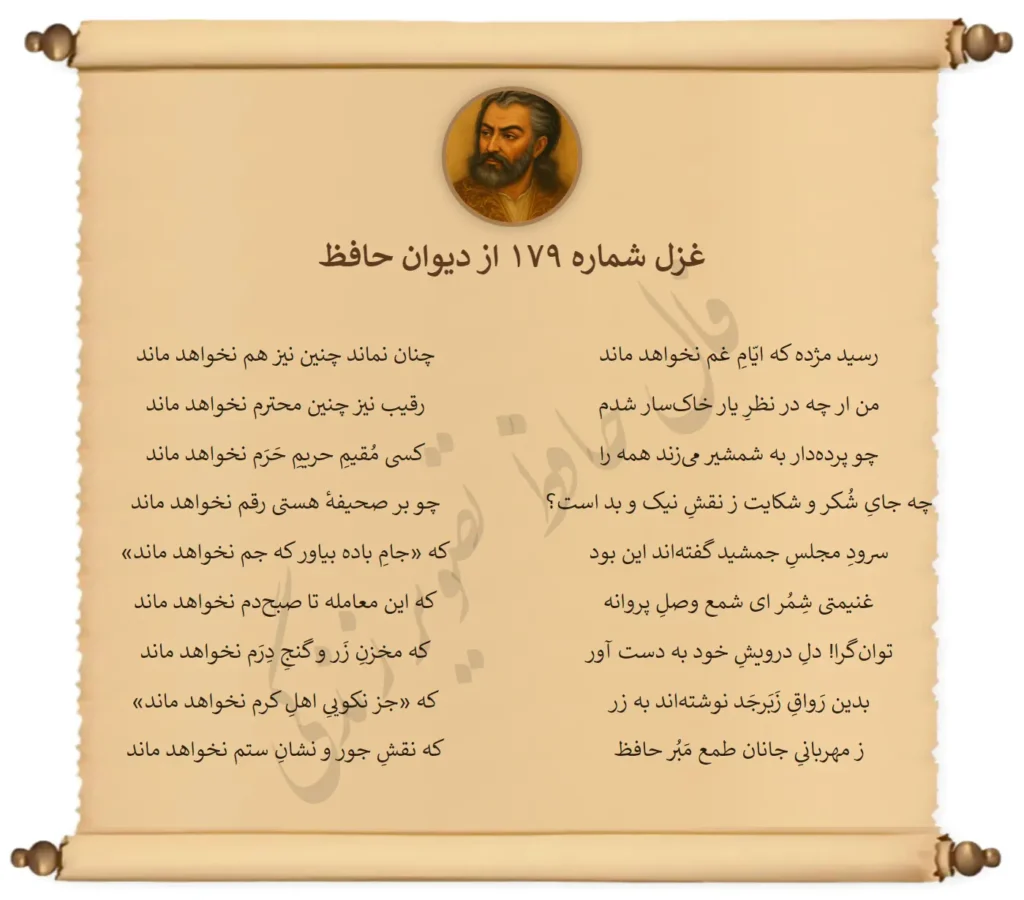 غزل شماره ۱۷۹ از دیوان حافظ
رسید مژده که ایّامِ غم نخواهد ماند چنان نماند چنین نیز هم نخواهد ماند
من ار چه در نظرِ یار خاک‌سار شدم رقیب نیز چنین محترم نخواهد ماند
چو پرده‌دار به شمشیر می‌زند همه را کسی مُقیمِ حریمِ حَرَم نخواهد ماند
چه جایِ شُکر و شکایت ز نقشِ نیک و بد است؟ چو بر صحیفهٔ هستی رقم نخواهد ماند
سرودِ مجلسِ جمشید گفته‌اند این بود که «جامِ باده بیاور که جم نخواهد ماند»
غنیمتی شِمُر ای شمع وصلِ پروانه که این معامله تا صبح‌دم نخواهد ماند
توان‌گرا! دلِ درویشِ خود به دست آور که مخزنِ زَر و گنجِ دِرَم نخواهد ماند
بدین رَواقِ زَبَرجَد نوشته‌اند به زر که «جز نکوییِ اهلِ کرم نخواهد ماند»
ز مهربانیِ جانان طمع مَبُر حافظ که نقشِ جور و نشانِ ستم نخواهد ماند
فال حافظ تصویر زندگی